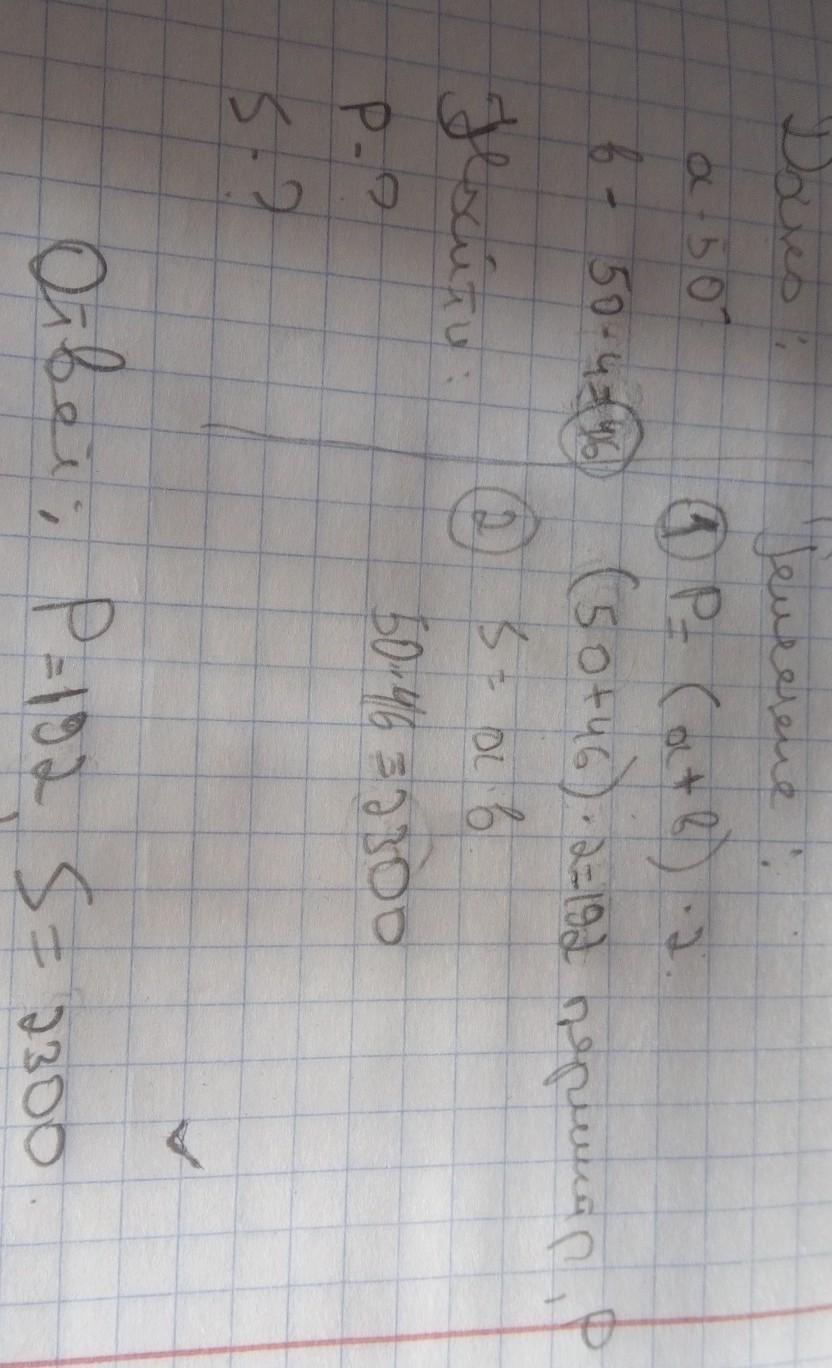 Дано:
a - 50
b - 50-4=46
Найти:
P-?
S-?
Решение:
1 P= (a+b)·2.
(50+46)·2=192
2 S= a·b
50·46=2300
Ответ: P=192, S=2300.